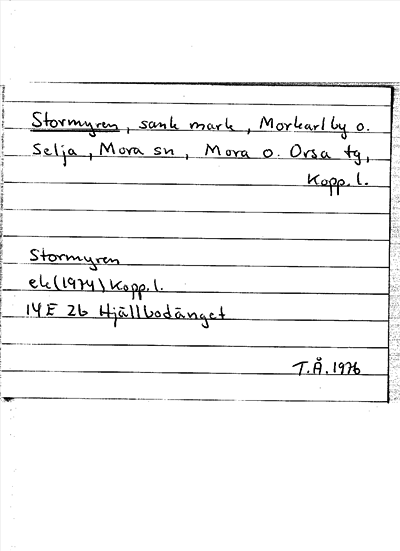 Stormyren, sank mark, Morkarlby o.
Selja, Mora sn, Mora o. Orsa tg,
Kopp. l.
Stormyren
ek (1974) Kopp. l.
14E 2b Hjällbodänget
T.Å. 1976